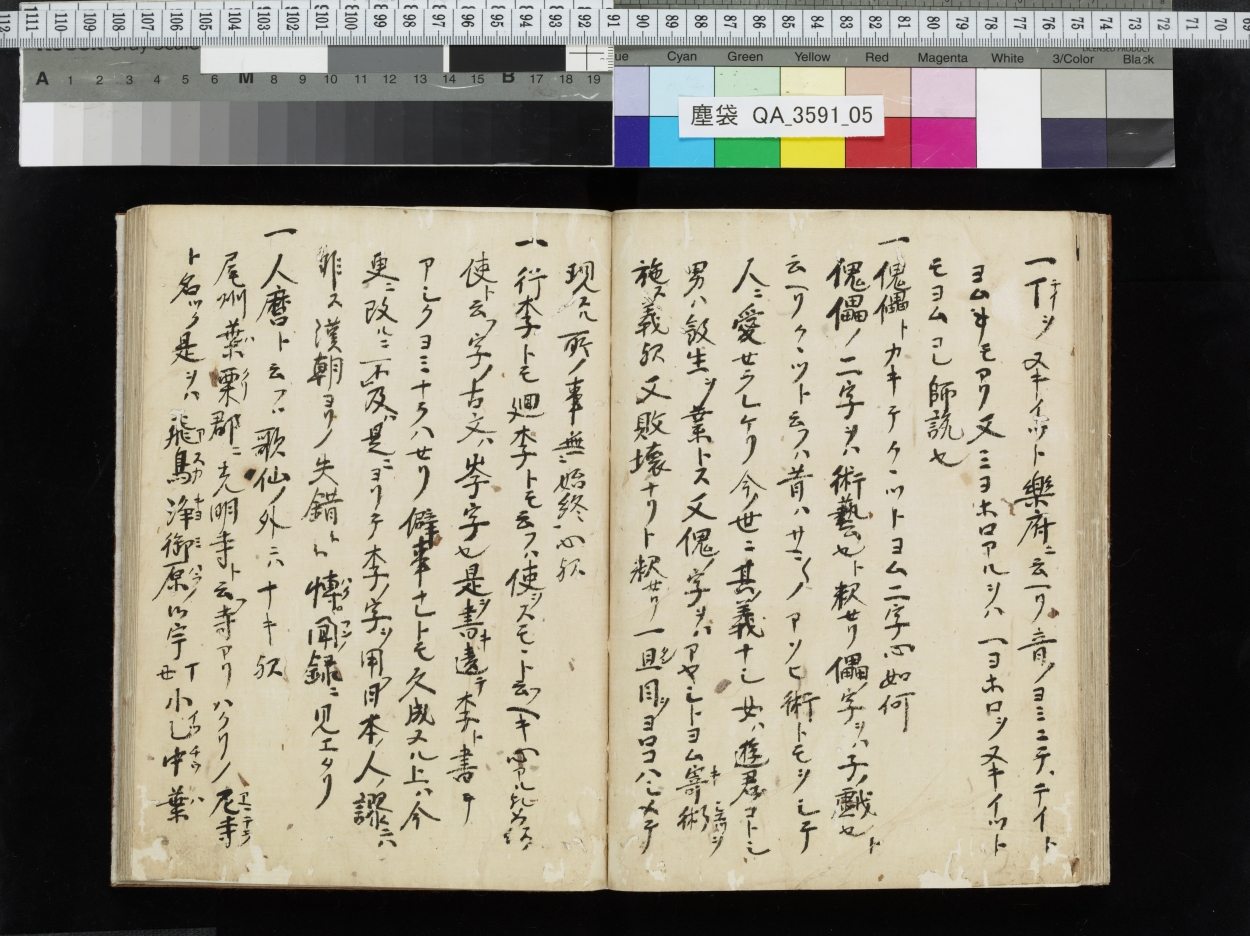 塵袋 QA_3591_05
Cyan Green Yellow Red Magenta White 3/Color Black
A 1 2 3 4 5 6 M 8 9 10 11 12 13 14 15 B 17 18 19
一丁ヲ ヌキイツト樂府ニ云ヘリ音ノヨミニテテイト
ヨム事モアリ又ミヨホロアルヲハ一ヨホロヲヌキイツト
モヨムヘシ師説也
一傀儡トカキテクヽツトヨム二字心如何
傀儡ノ二字ヲハ術藝也ト釈セリ儡字ヲハ子ノ戲也ト
云ヘリクヽツト云フハ昔ハサマ〱ノアソヒ術トモヲシテ
人ニ愛セラレケリ今ノ世ニ其義ナシ女ハ遊君コトシ
男ハ敓生ヲ業トス又傀ノ字ヲハアヤシトヨム寄術
施ス義歟又敗壊ナリト釈セリ一旦目ヲヨロコハシメテ
現スル所ノ事無始終心歟
一行李トモ廻李トモ云フハ使ヲスモート云フヘキ心アル
使ト云フ字ノ古文ハ字也是書遠テ李ト書テ
アシクヨミナラハセリ僻事ナレトモ久成ヌル上ハ今
更ニ改ルニ不及是ニヨリテ李字ヲ用日本ノ人ノ謬ニハ
非ス漢朝ヨリノ失錯ト愽聞録ニ見エタリ
一人麿ト云フハ歌仙ノ外ニハナキ歟
尾州葉栗郡ニ光明寺ト云フ寺アリハクリノ尼寺
ト名ツク是ヲハ飛鳥浄御原御宇丁丑小乙中葉